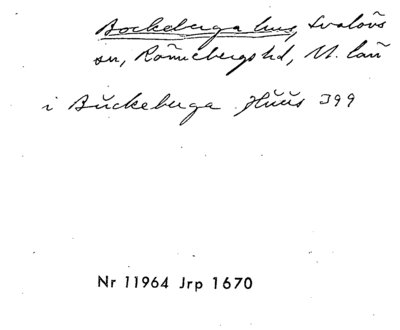 Bockeberga hus, Svalövs
sn, Rönnebergs hd, M. län
i Bŭckebuga Hŭŭs 399
Nr 11964 Jrp 1670